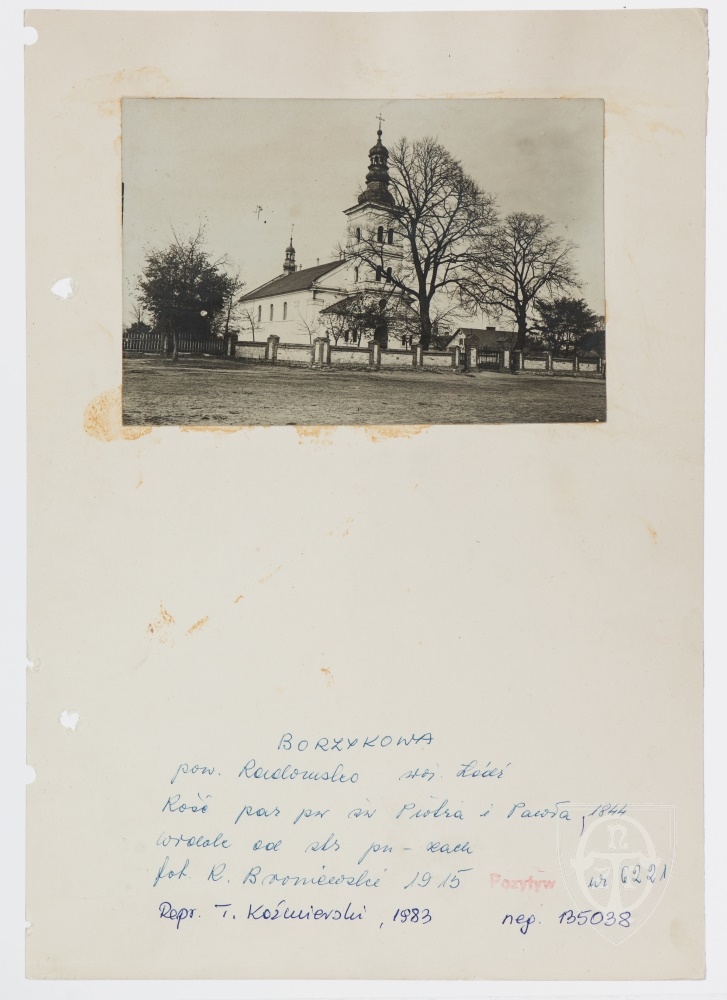 BORZYKOWA
pow. Radomsko woj. Łódź
Kość par pw św Piotra i Pawła, 1844
widok od str pn-zach
fot. R. Broniewski 1915 Pozytyw nr 6221
Repr. T. Kaźmierski, 1983 neg. 135038